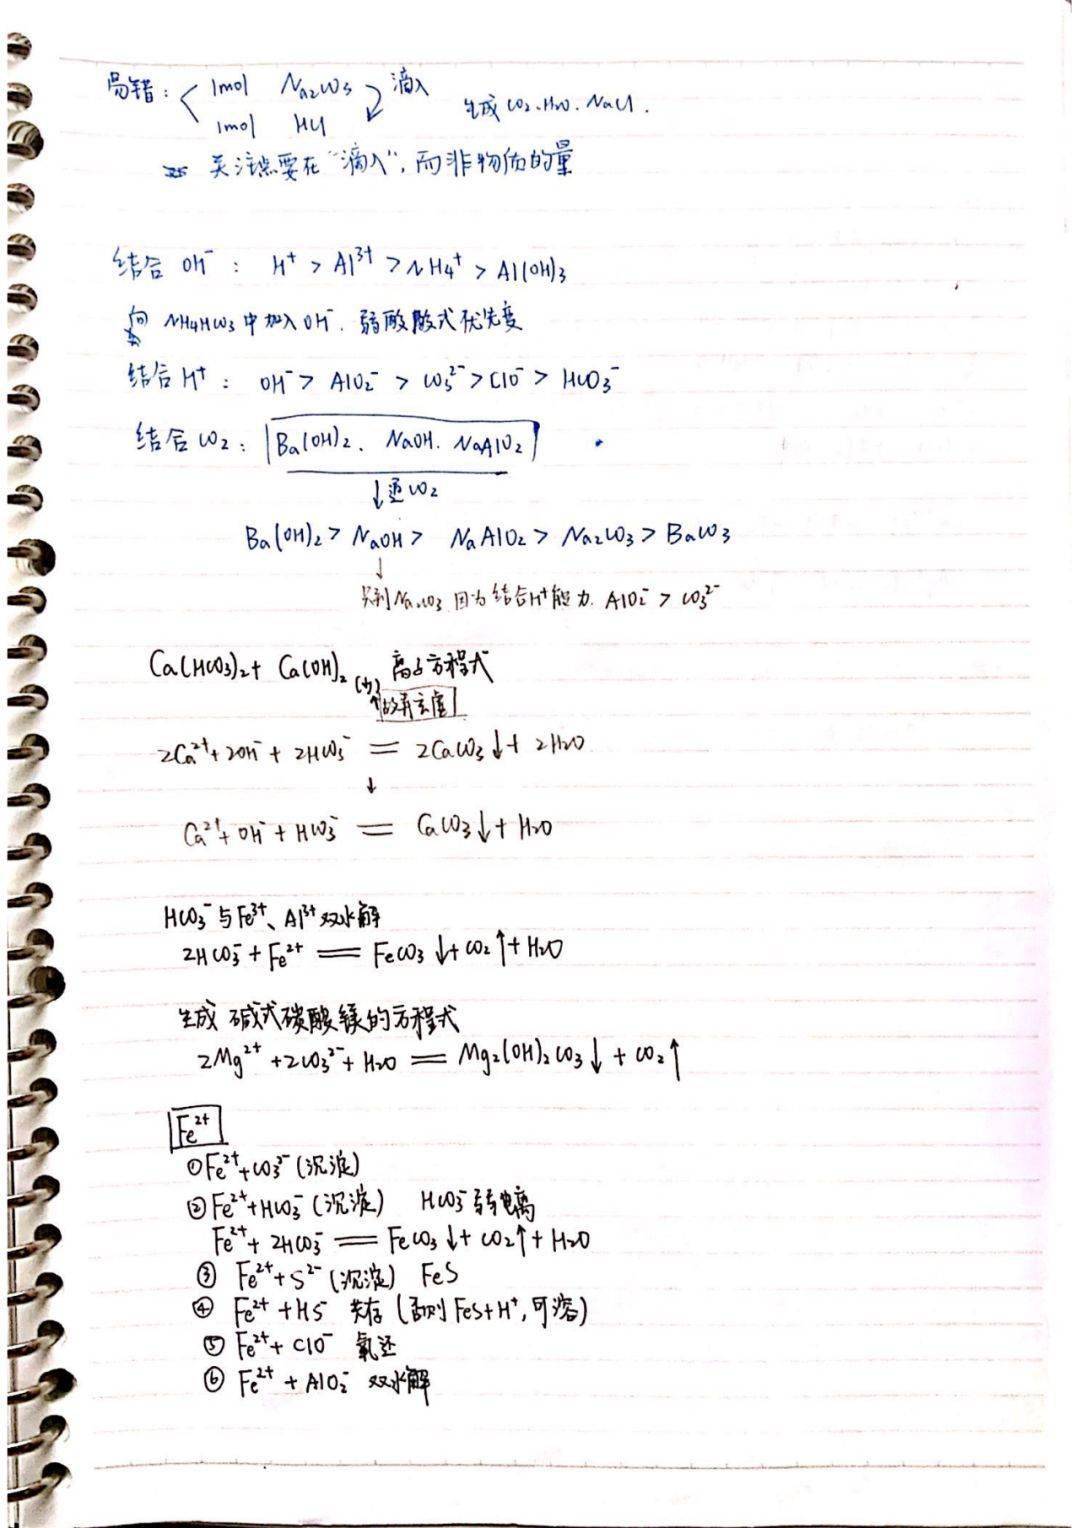 易错： 1mol Na2CO3 滴入
1mol HCl 生成CO2.H2O.NaCl.
关注点要在“滴入”,而非物质的量
结合 OH⁻ ： H⁺ > Al³⁺ > NH4⁺ > Al(OH)3
向 NH4HCO3 中加入 OH⁻. 弱酸酸式优先度
结合 H⁺ ： OH⁻ > AlO2⁻ > CO3²⁻ > ClO⁻ > HCO3⁻
结合 CO2 ： Ba(OH)2 、 NaOH. NaAlO2
↓通CO2
Ba(OH)2 > NaOH > NaAlO2 > Na2CO3 > BaCO3
↓
只到Na2CO3 因为结合H⁺能力. AlO2⁻ > CO3²⁻
Ca(HCO3)2 + Ca(OH)2 (少) 离子方程式
↑故弄玄虚
2Ca²⁺ + 2OH⁻ + 2HCO3⁻ = 2CaCO3↓ + 2H2O
↓
Ca²⁺ + OH⁻ + HCO3⁻ = CaCO3↓ + H2O
HCO3⁻ 与 Fe³⁺、Al³⁺ 双水解
2HCO3⁻ + Fe²⁺ = FeCO3↓ + CO2↑ + H2O
生成 碱式碳酸镁的方程式
2Mg²⁺ + 2CO3²⁻ + H2O = Mg2(OH)2CO3↓ + CO2↑
Fe²⁺
① Fe²⁺ + CO3²⁻ (沉淀)
② Fe²⁺ + HCO3⁻ (沉淀) HCO3⁻ 弱电离
Fe²⁺ + 2HCO3⁻ = FeCO3↓ + CO2↑ + H2O
③ Fe²⁺ + S²⁻ (沉淀) FeS
④ Fe²⁺ + HS⁻ 共存 (否则 FeS+H⁺,可溶)
⑤ Fe²⁺ + ClO⁻ 氧还
⑥ Fe²⁺ + AlO2⁻ 双水解